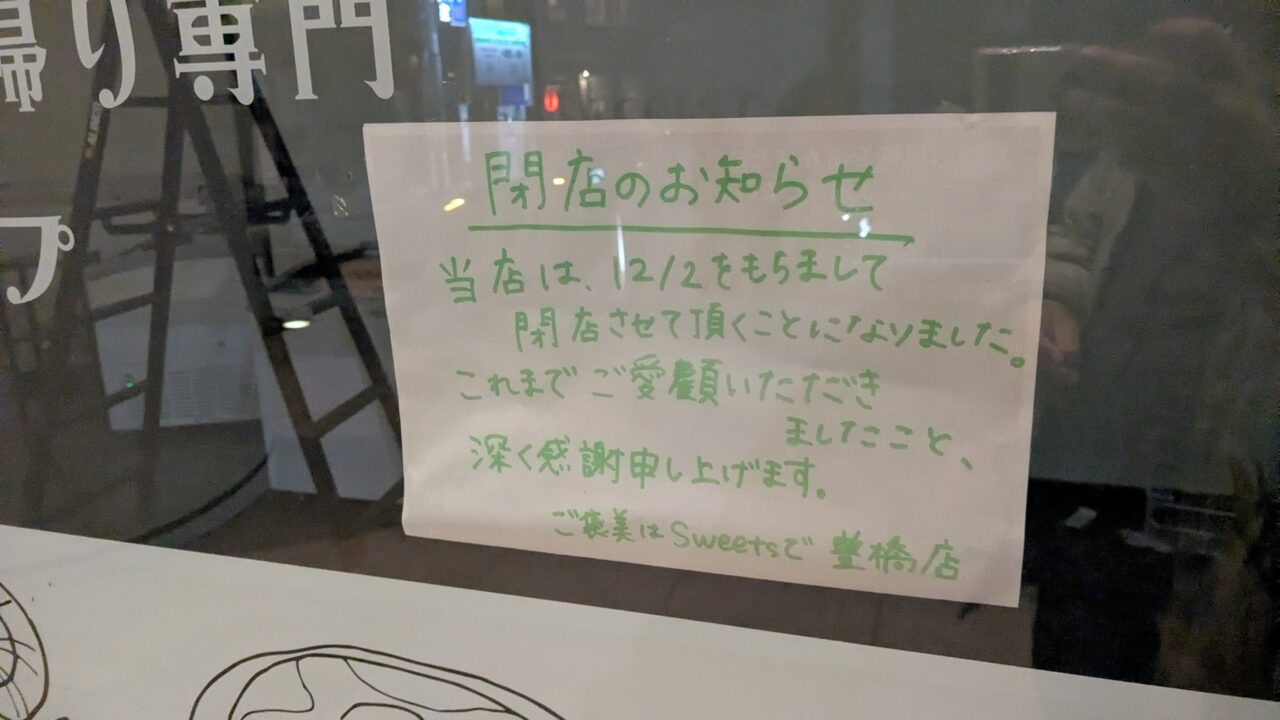 帰り専門
プ
閉店のお知らせ
当店は、12/2をもちまして
閉店させて頂くことになりました。
これまでご愛顧いただき
ましたこと、
深く感謝申し上げます。
ご褒美はSweetsで 豊橋店